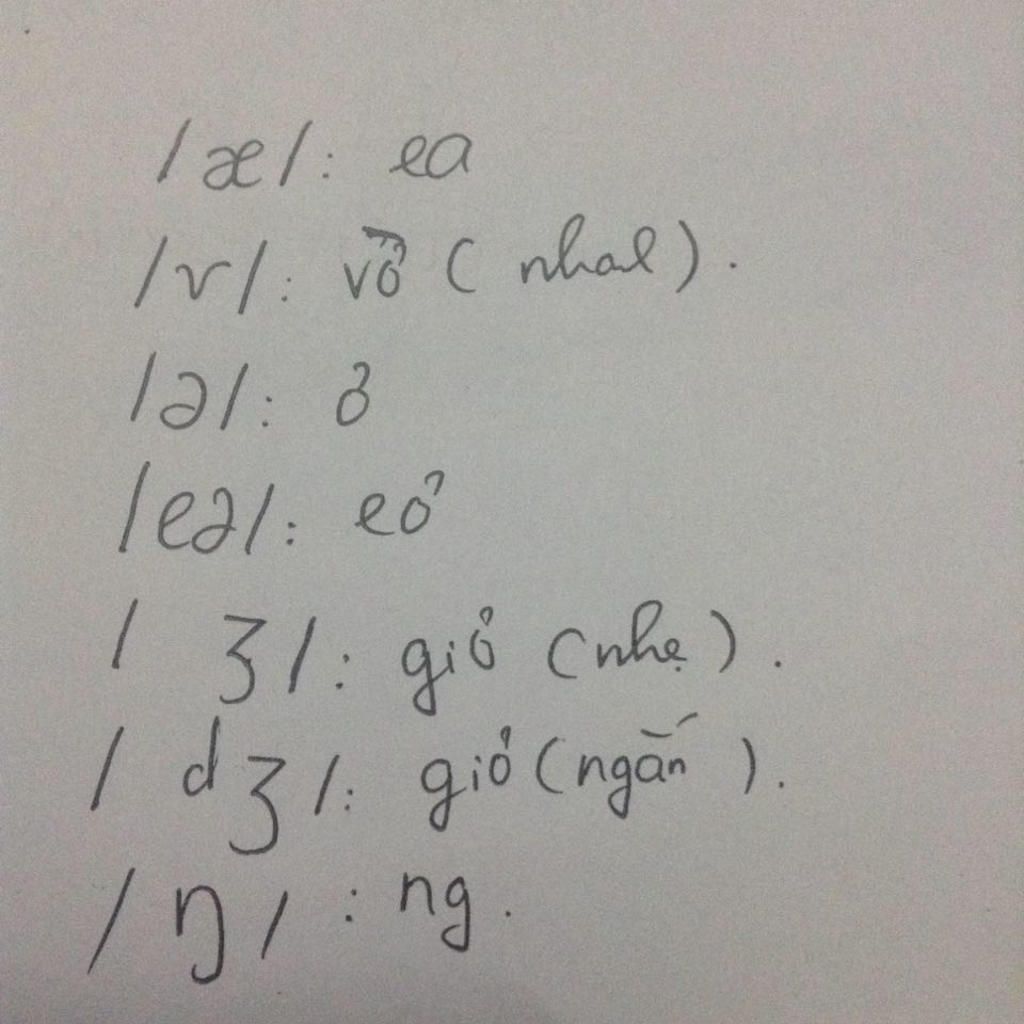 /æ/: ea
/v/: vờ ( nhal ).
/ə/: ơ
/eə/: eơ
/ ʒ/: giơ (nhẹ).
/ dʒ/: giơ (ngắn ).
/ ŋ/ : ng.